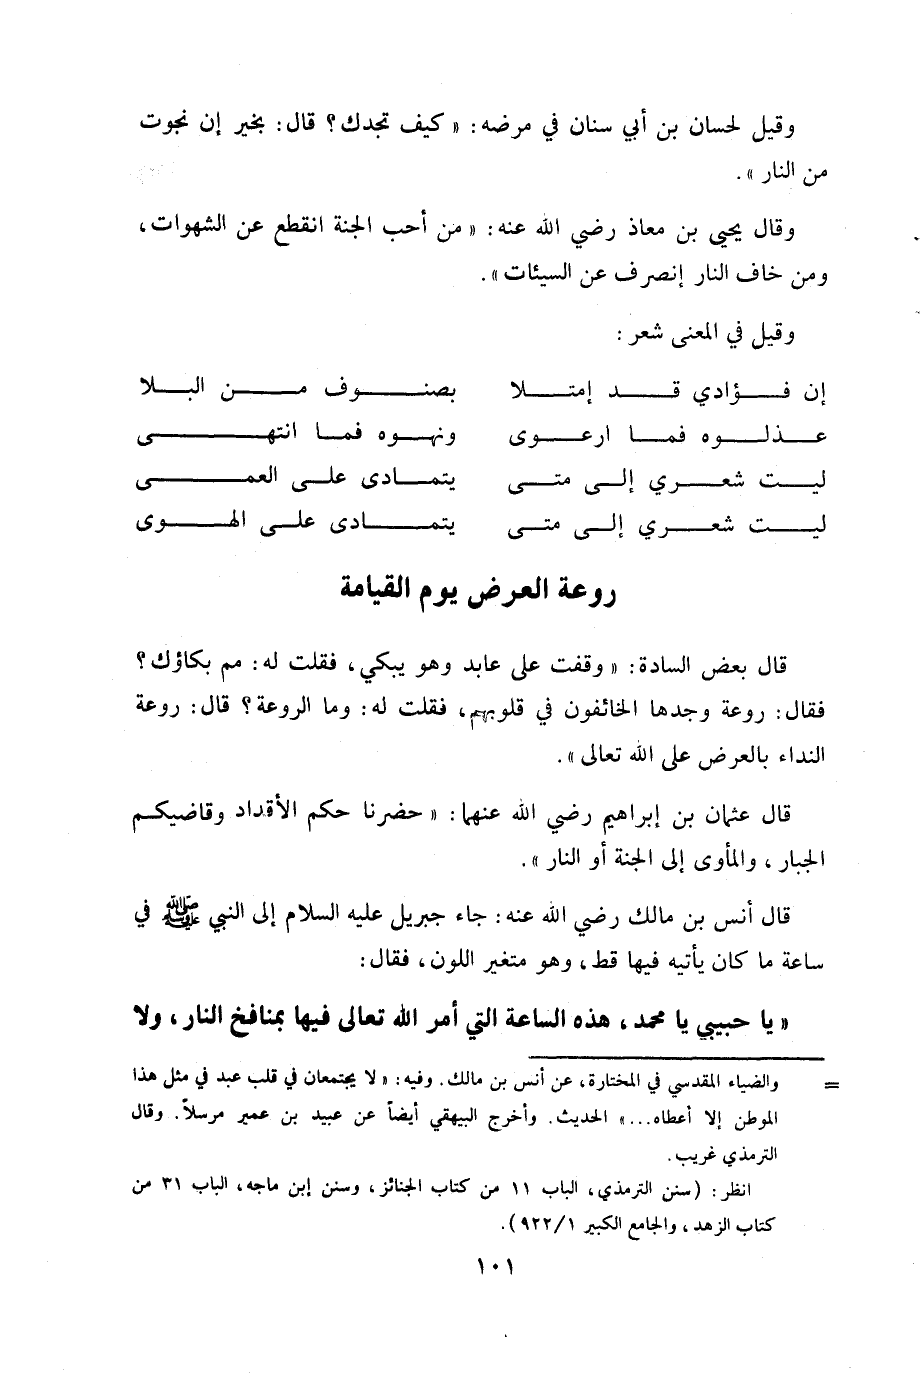 وقيل لحسان بن أبي سنان في مرضه: « كيف تجدك؟ قال: بخير إن نجوت
من النار ».
وقال يحيى بن معاذ رضي الله عنه: « من أحب الجنة انقطع عن الشهوات،
ومن خاف النار إنصرف عن السيئات».
وقيل في المعنى شعر:
إن فـؤادي قـد إمتـلا بصنـوف مـن البـلا
عـذلـوه فمـا ارعـوى ونهـوه فمـا انتهـى
ليـت شعـري إلـى متـى يتمـادى علـى العمـى
ليـت شعـري إلـى متـى يتمـادى علـى الهـوى
روعة العرض يوم القيامة
قال بعض السادة: « وقفت على عابد وهو يبكي، فقلت له: مم بكاؤك؟
فقال: روعة وجدها الخائفون في قلوبهم، فقلت له: وما الروعة؟ قال: روعة
النداء بالعرض على الله تعالى».
قال عثمان بن إبراهيم رضي الله عنهما: « حضرنا حكم الأقداد وقاضيكم
الجبار، والمأوى إلى الجنة أو النار ».
قال أنس بن مالك رضي الله عنه: جاء جبريل عليه السلام إلى النبي ﷺ في
ساعة ما كان يأتيه فيها قط، وهو متغير اللون، فقال:
« يا حبيبي يا محمد، هذه الساعة التي أمر الله تعالى فيها بمنافخ النار، ولا
= والضياء المقدسي في المختارة، عن أنس بن مالك. وفيه: « لا يجتمعان في قلب عبد في مثل هذا
الموطن إلا أعطاه...» الحديث. وأخرج البيهقي أيضاً عن عبيد بن عمير مرسلاً. وقال
الترمذي غريب.
انظر: (سنن الترمذي، الباب ١١ من كتاب الجنائز، وسنن إبن ماجه، الباب ٣١ من
كتاب الزهد، والجامع الكبير ٩٢٢/١).
١٠١